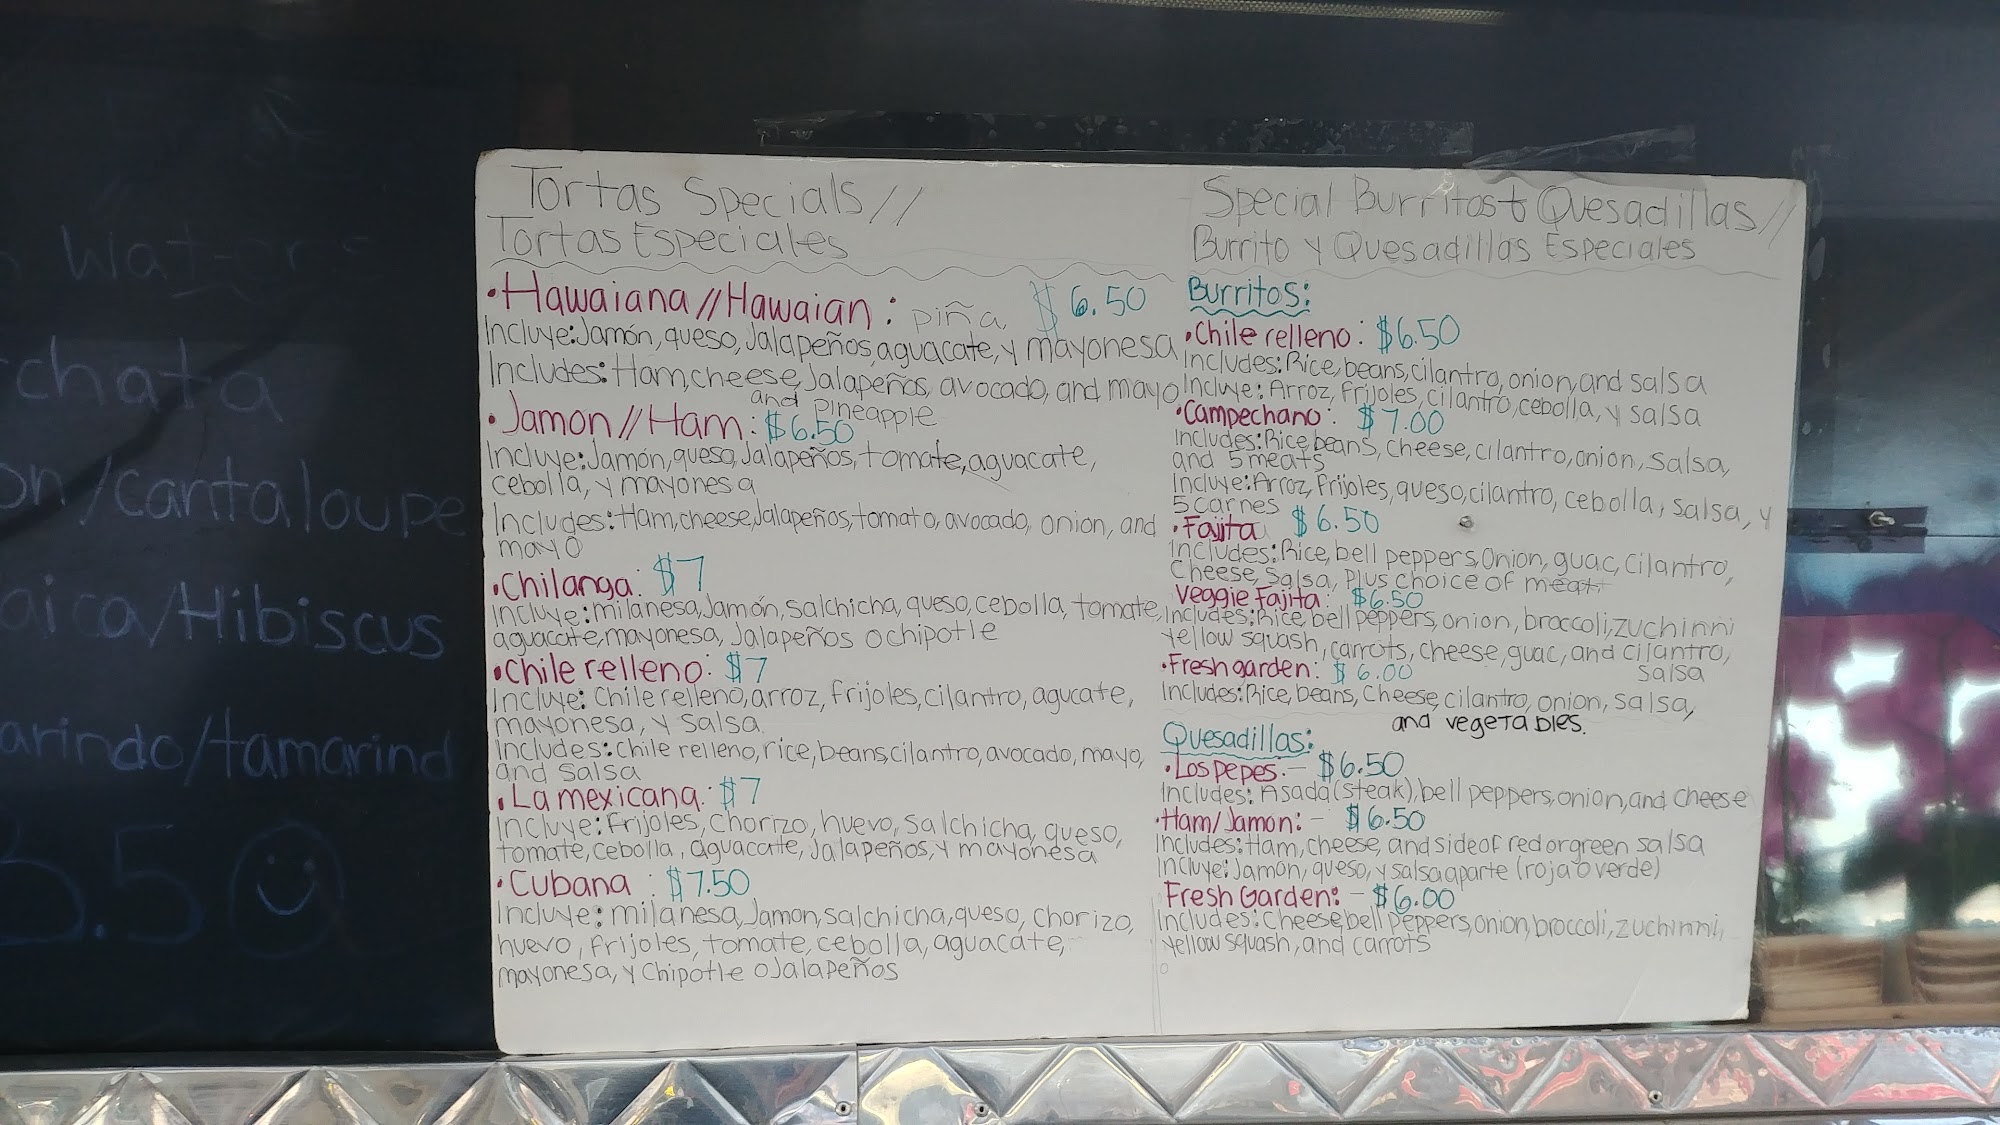 Waters
chata
on/cantaloupe
aica/Hibiscus
arindo/tamarind
3.50
Tortas Specials//
Tortas Especiales
• Hawaiana//Hawaian: piña, $6.50
Incluye: Jamón, queso, Jalapeños, aguacate, y mayonesa
Includes: Ham, cheese, Jalapeños, avocado, and mayo
and pineapple
• Jamon//Ham: $6.50
Incluye: Jamón, queso, Jalapeños, tomate, aguacate,
cebolla, y mayonesa
Includes: Ham, cheese, Jalapeños, tomato, avocado, onion, and
mayo
• Chilanga: $7
Incluye: milanesa, Jamón, salchicha, queso, cebolla, tomate,
aguacate, mayonesa, Jalapeños o chipotle
• Chile relleno: $7
Incluye: Chile relleno, arroz, frijoles, cilantro, agucate,
mayonesa, y salsa
Includes: chile relleno, rice, beans, cilantro, avocado, mayo,
and salsa
• La mexicana: $7
Incluye: Frijoles, Chorizo, huevo, salchicha, queso,
tomate, cebolla, aguacate, Jalapeños, y mayonesa
• Cubana: $7.50
Incluye: milanesa, Jamon, salchicha, queso, chorizo,
huevo, frijoles, tomate, cebolla, aguacate,
mayonesa, y Chipotle o Jalapeños
Special Burritos + Quesadillas//
Burrito y Quesadillas Especiales
Burritos:
• Chile relleno: $6.50
Includes: Rice, beans, cilantro, onion, and salsa
Incluye: Arroz, frijoles, cilantro, cebolla, y salsa
• Campechano: $7.00
Includes: Rice, beans, cheese, cilantro, onion, salsa,
and 5 meats
Incluye: Arroz, frijoles, queso, cilantro, cebolla, salsa, y
5 carnes
• Fajita $6.50
Includes: Rice, bell peppers, Onion, guac, cilantro,
Cheese, salsa, plus choice of meat
Veggie Fajita: $6.50
Includes: Rice, bell peppers, onion, broccoli, zuchinni
yellow squash, carrots, cheese, guac, and cilantro,
salsa
• Fresh garden: $6.00
Includes: Rice, beans, Cheese, cilantro, onion, salsa,
and vegetables.
Quesadillas:
• Los pepes. - $6.50
Includes: Asada (steak), bell peppers, onion, and cheese
• Ham/Jamon: - $6.50
Includes: Ham, cheese, and side of red or green salsa
Incluye: Jamón, queso, y salsa aparte (roja o verde)
Fresh Garden: - $6.00
Includes: Cheese, bell peppers, onion, broccoli, zuchinni,
yellow squash, and carrots